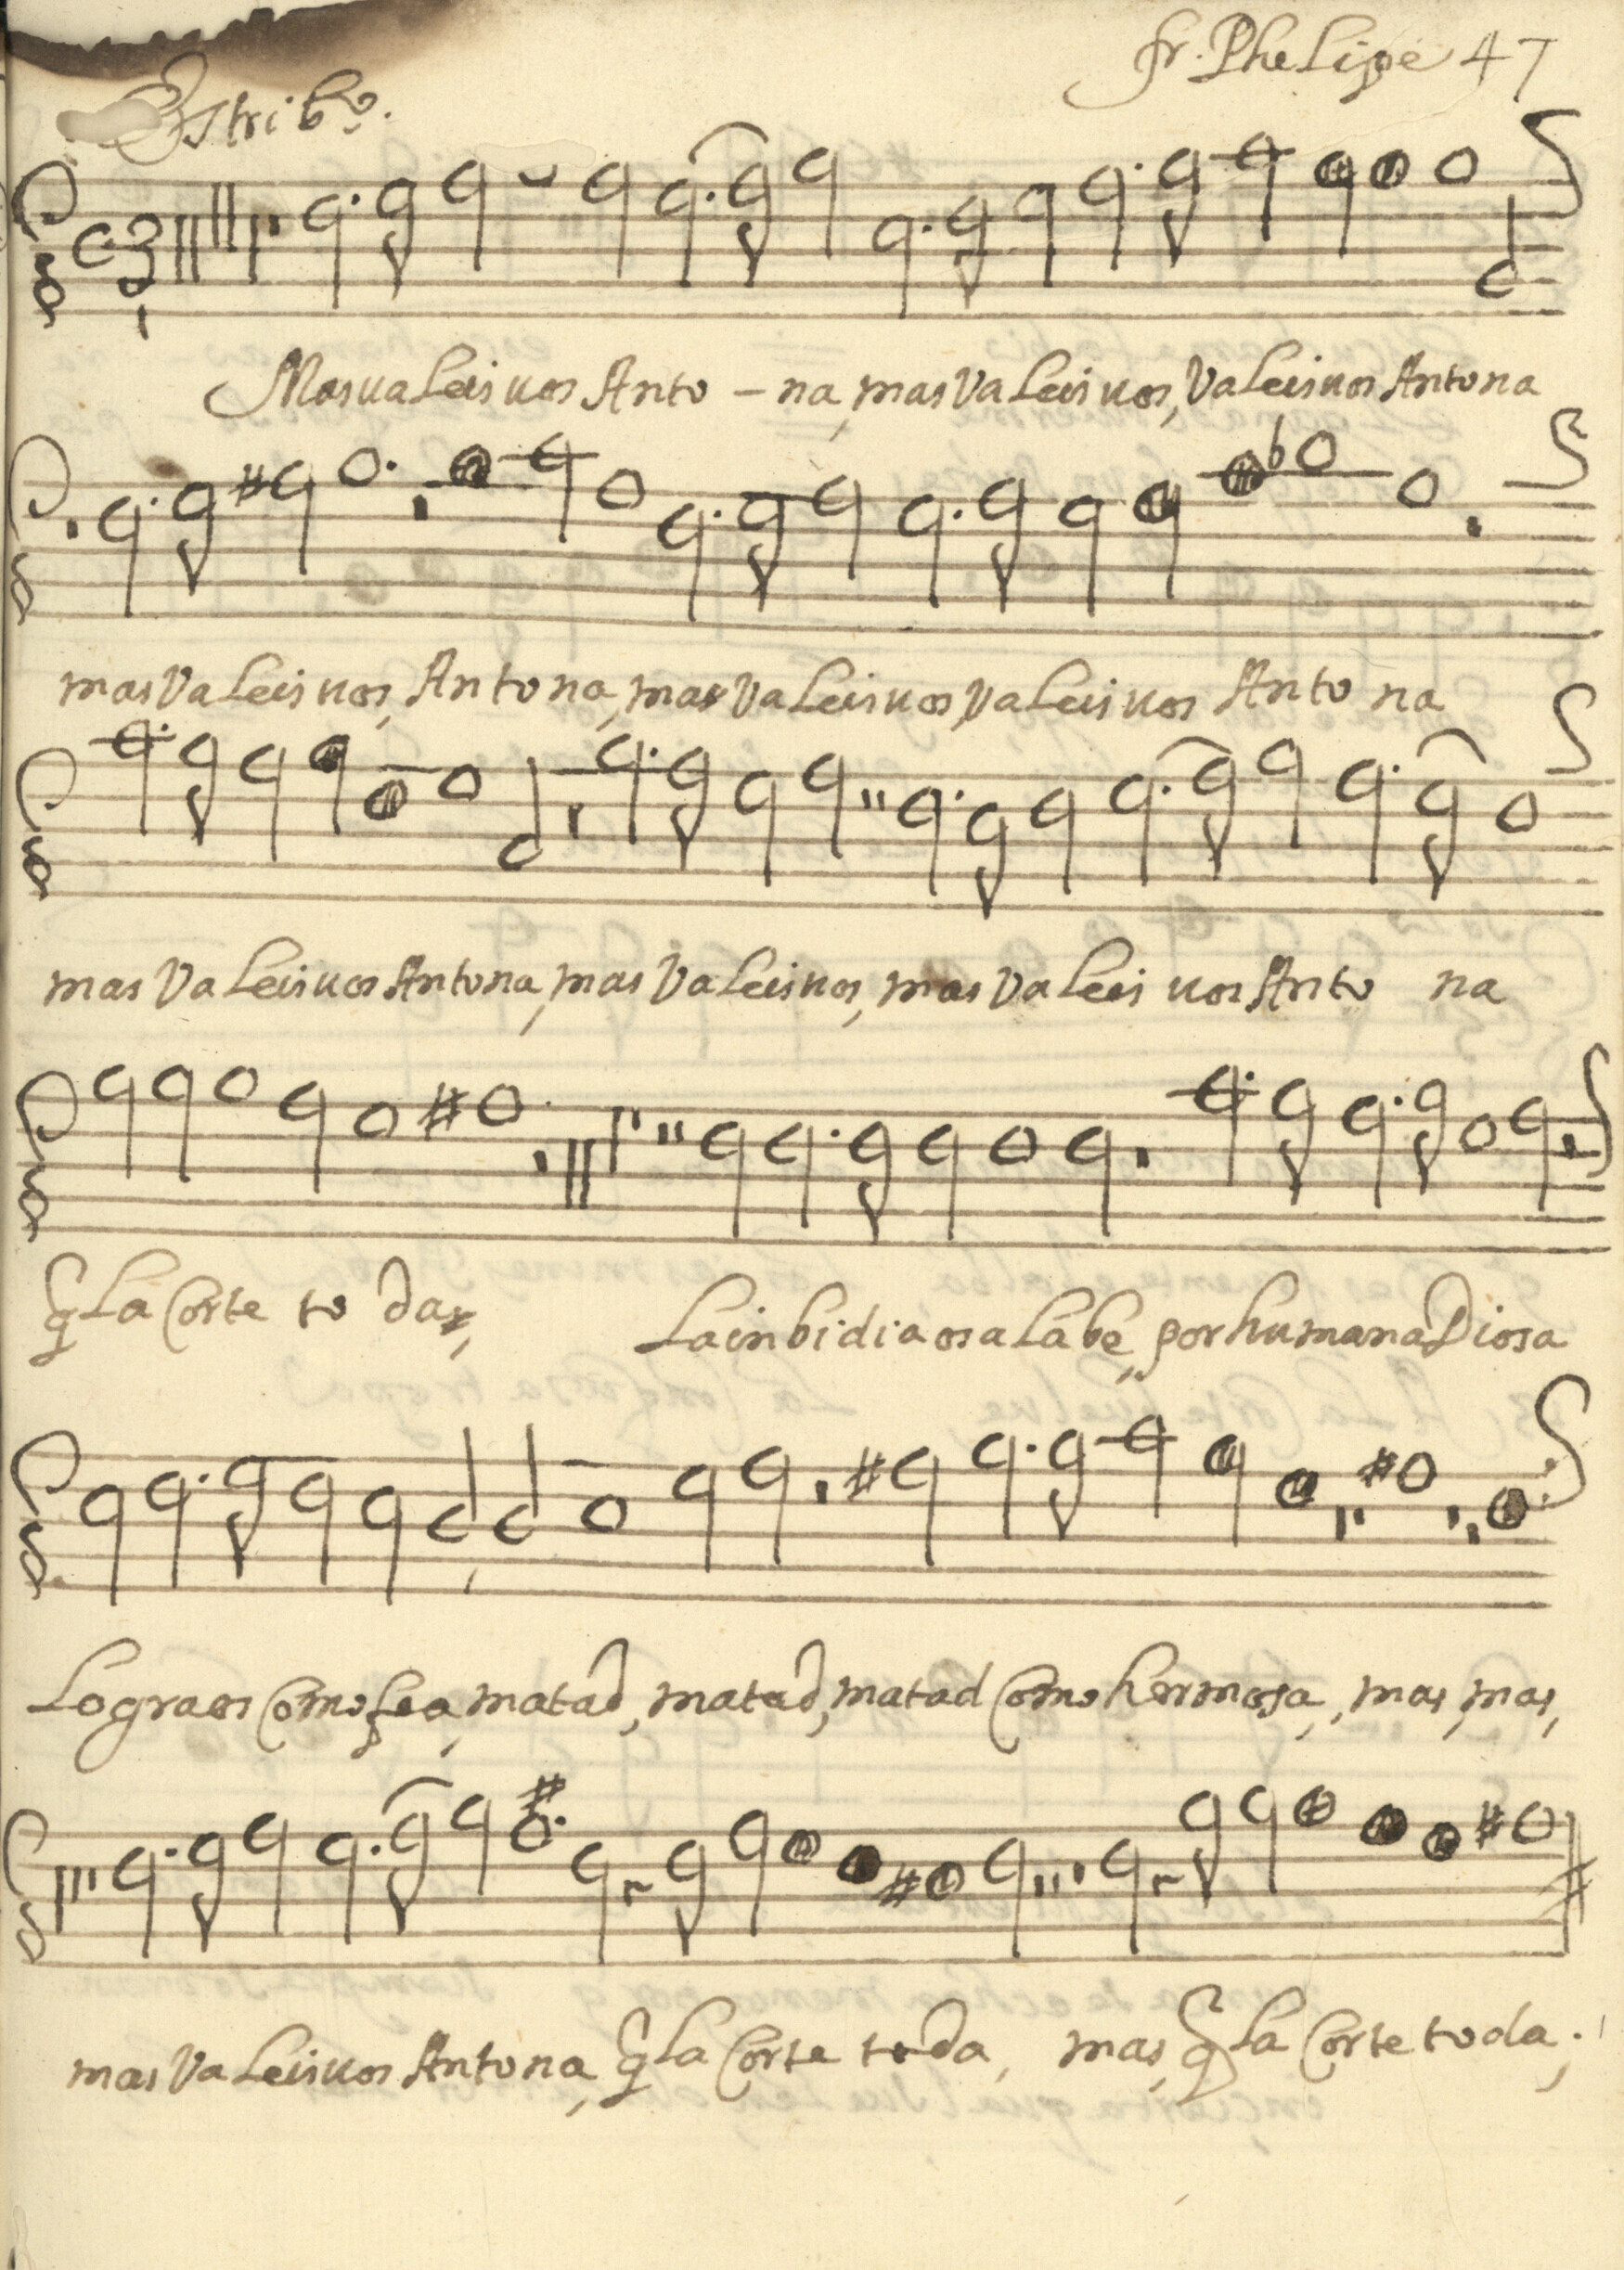 fr. Phelipe 47
Estribo.
Mas valeis vos Anto - na, mas Valeis vos, Valeis vos Antona
mas Valeis vos, Antona, mas Valeis vos, Valeis vos Anto na
mas Valeis vos Antona, mas Valeis vos, mas Valeis vos Anto na
q La Corte to da,
La inbidia os alabe, por humana Diosa
Lograos Como fea, matad, matad, matad Como hermosa, mas, mas,
mas Valeis vos Antona, q La Corte toda, mas, q La Corte toda.